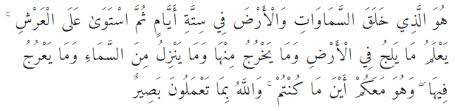 هُوَ الَّذِي خَلَقَ السَّمَاوَاتِ وَالْأَرْضَ فِي سِتَّةِ أَيَّامٍ ثُمَّ اسْتَوَىٰ عَلَى الْعَرْشِ ۚ
يَعْلَمُ مَا يَلِجُ فِي الْأَرْضِ وَمَا يَخْرُجُ مِنْهَا وَمَا يَنْزِلُ مِنَ السَّمَاءِ وَمَا يَعْرُجُ
فِيهَا ۖ وَهُوَ مَعَكُمْ أَيْنَ مَا كُنْتُمْ ۚ وَاللَّهُ بِمَا تَعْمَلُونَ بَصِيرٌ